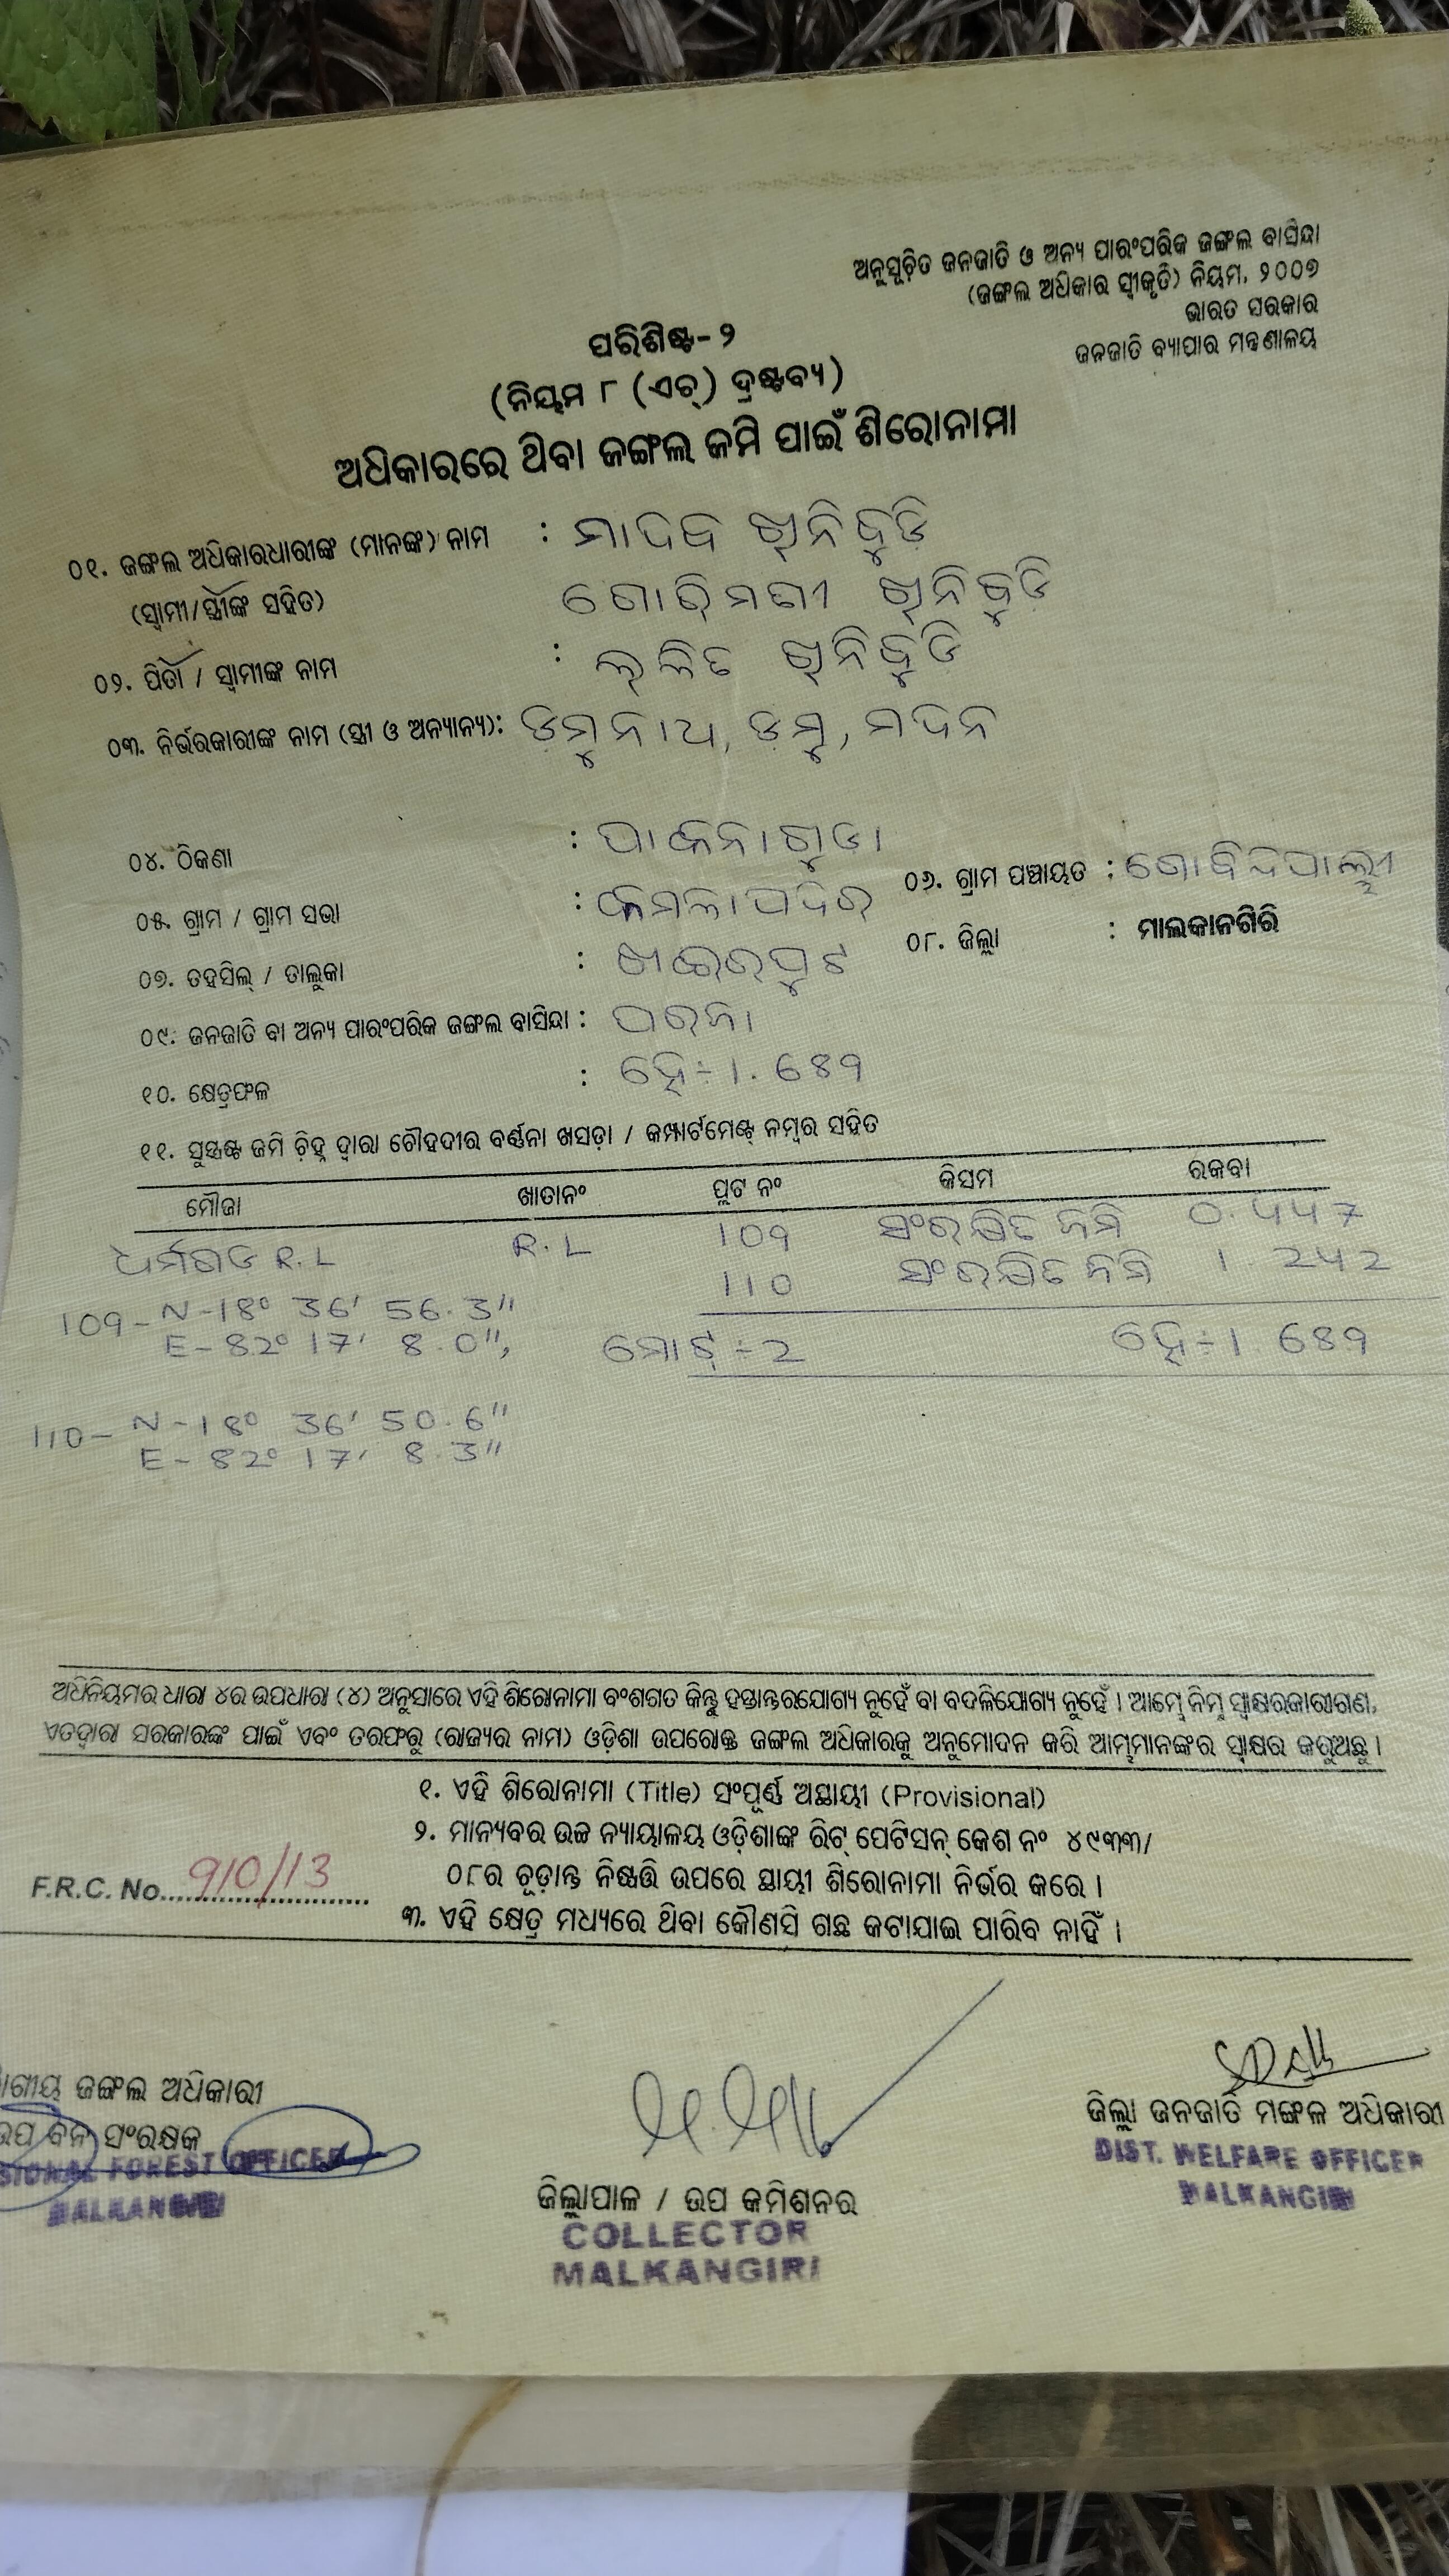 ଅନୁସୂଚିତ ଜନଜାତି ଓ ଅନ୍ୟ ପାରଂପରିକ ଜଙ୍ଗଲ ବାସିନ୍ଦା
(ଜଙ୍ଗଲ ଅଧିକାର ସ୍ଵୀକୃତି) ନିୟମ, ୨୦୦୭
ଭାରତ ସରକାର
ଜନଜାତି ବ୍ୟାପାର ମନ୍ତ୍ରଣାଳୟ
ପରିଶିଷ୍ଟ-୨
(ନିୟମ ୮ (ଏଚ୍) ଦ୍ରଷ୍ଟବ୍ୟ)
ଅଧିକାରରେ ଥିବା ଜଙ୍ଗଲ ଜମି ପାଇଁ ଶିରୋନାମା
୦୧. ଜଙ୍ଗଲ ଅଧିକାରଧାରୀଙ୍କ (ମାନଙ୍କ) ନାମ : ମାଦବ ଖିନିବୁଡି
(ସ୍ଵାମୀ/ସ୍ତ୍ରୀଙ୍କ ସହିତ) ଖିନିବୁଡି
୦୨. ପିତା / ସ୍ଵାମୀଙ୍କ ନାମ : ଲଳିତ ଖିନିବୁଡି
୦୩. ନିର୍ଭରକାରୀଙ୍କ ନାମ (ସ୍ତ୍ରୀ ଓ ଅନ୍ୟାନ୍ୟ): ଡମୁନାଥ, ଡମୁ, ମଦନ
୦୪. ଠିକଣା : ପାକନାଗୁଡା
୦୫. ଗ୍ରାମ / ଗ୍ରାମ ସଭା : କମଳାପଦର ୦୬. ଗ୍ରାମ ପଞ୍ଚାୟତ : ଗୋବିନ୍ଦପାଲ୍ଲୀ
୦୭. ତହସିଲ୍ / ତାଲୁକା : ଖଇରପୁଟ ୦୮. ଜିଲ୍ଲା : ମାଲକାନଗିରି
୦୯. ଜନଜାତି ବା ଅନ୍ୟ ପାରଂପରିକ ଜଙ୍ଗଲ ବାସିନ୍ଦା : ପରଜା
୧୦. କ୍ଷେତ୍ରଫଳ : ହେ÷1.689
୧୧. ସୁସ୍ପଷ୍ଟ ଜମି ଚିହ୍ନ ଦ୍ଵାରା ଚୌହଦୀର ବର୍ଣ୍ଣନା ଖସଡ଼ା / କମ୍ପାର୍ଟମେଣ୍ଟ୍ ନମ୍ବର ସହିତ
ମୌଜା ଖାତାନଂ ପ୍ଲଟ ନଂ କିସମ ରକବା
ଧର୍ମଗଡ R.L R.L 109 ସଂରକ୍ଷିତ ଜମି 0.447
110 ସଂରକ୍ଷିତ ଜମି 1.242
109- N-18° 36' 56.3"
E-82° 17' 8.0", ମୋଟ୍ ÷2 ହେ÷1.689
110- N-18° 36' 50.6"
E-82° 17' 8.3"
ଅଧିନିୟମର ଧାରା ୪ର ଉପଧାରା (୪) ଅନୁସାରେ ଏହି ଶିରୋନାମା ବଂଶଗତ କିନ୍ତୁ ହସ୍ତାନ୍ତରଯୋଗ୍ୟ ନୁହେଁ ବା ବଦଳିଯୋଗ୍ୟ ନୁହେଁ । ଆମ୍ଭେ ନିମ୍ନ ସ୍ଵାକ୍ଷରକାରୀଗଣ,
ଏତଦ୍ଵାରା ସରକାରଙ୍କ ପାଇଁ ଏବଂ ତରଫରୁ (ରାଜ୍ୟର ନାମ) ଓଡ଼ିଶା ଉପରୋକ୍ତ ଜଙ୍ଗଲ ଅଧିକାରକୁ ଅନୁମୋଦନ କରି ଆମ୍ଭମାନଙ୍କର ସ୍ଵାକ୍ଷର କରୁଅଛୁ ।
୧. ଏହି ଶିରୋନାମା (Title) ସଂପୂର୍ଣ୍ଣ ଅସ୍ଥାୟୀ (Provisional)
୨. ମାନ୍ୟବର ଉଚ୍ଚ ନ୍ୟାୟାଳୟ ଓଡ଼ିଶାଙ୍କ ରିଟ୍ ପେଟିସନ୍ କେଶ ନଂ ୪୯୩୩/
୦୮ର ଚୂଡ଼ାନ୍ତ ନିଷ୍ପତ୍ତି ଉପରେ ସ୍ଥାୟୀ ଶିରୋନାମା ନିର୍ଭର କରେ ।
F.R.C. No. 910/13
୩. ଏହି କ୍ଷେତ୍ର ମଧ୍ୟରେ ଥିବା କୌଣସି ଗଛ କଟାଯାଇ ପାରିବ ନାହିଁ ।
ଜଙ୍ଗଲ ଅଧିକାରୀ
ଉପ ବନ ସଂରକ୍ଷକ
SIONAL FOREST OFFICER
MALKANGIRI
ଜିଲ୍ଲାପାଳ / ଉପ କମିଶନର
COLLECTOR
MALKANGIRI
ଜିଲ୍ଲା ଜନଜାତି ମଙ୍ଗଳ ଅଧିକାରୀ
DIST. WELFARE OFFICER
MALKANGIRI